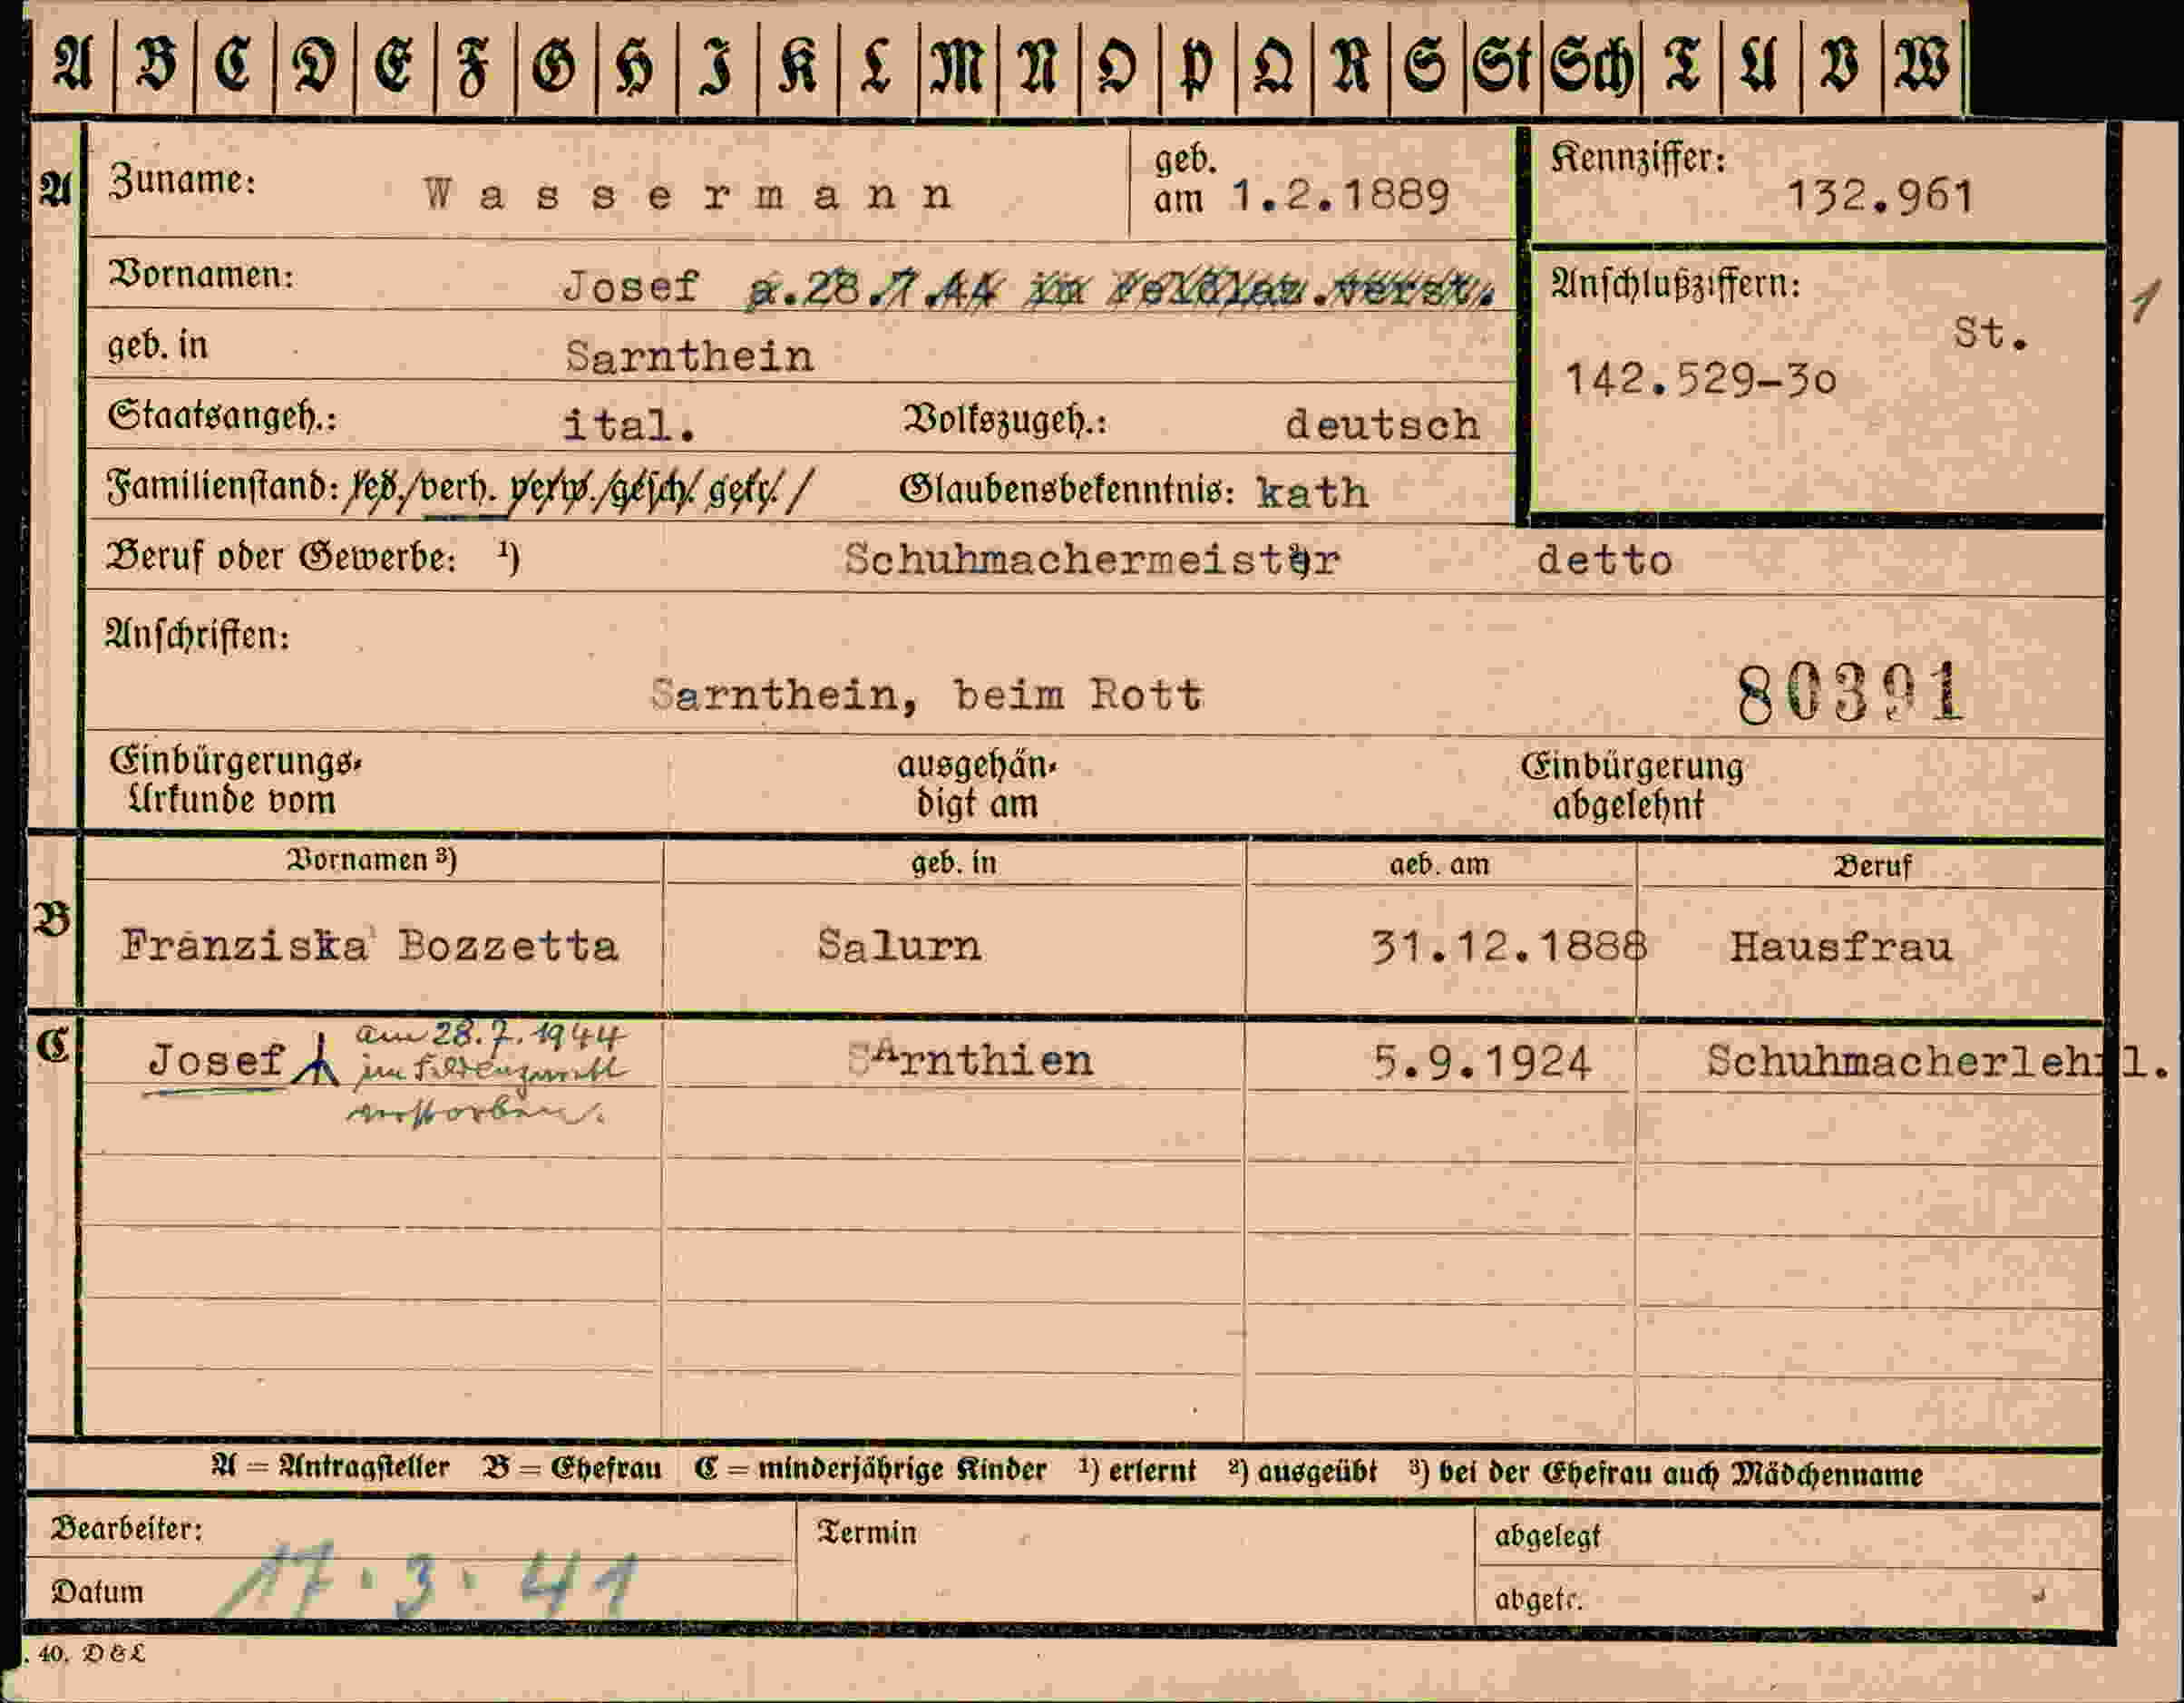 A B C D E F G H I K L M N O P Q R S St Sch T U V W
A Zuname: Wassermann geb. am 1.2.1889 Kennziffer: 132.961
Vornamen: Josef a.28.7.44 in Feldlaz.verst. Anschlußziffern: 1
St.
geb. in Sarnthein 142.529-30
Staatsangeh.: ital. Volkszugeh.: deutsch
Familienstand: led./verh. verw./gesch./getr./ Glaubensbekenntnis: kath
Beruf oder Gewerbe: ¹) Schuhmachermeister detto
Anschriften:
Sarnthein, beim Rott 80391
Einbürgerungs-
Urkunde vom
ausgehän-
digt am
Einbürgerung
abgelehnt
Vornamen ³) geb. in geb. am Beruf
B Franziska Bozzetta Salurn 31.12.1888 Hausfrau
C Josef am 28.7.1944 SArnthien 5.9.1924 Schuhmacherlehrl.
im
verstorben.
A = Antragsteller B = Ehefrau C = minderjährige Kinder ¹) erlernt ²) ausgeübt ³) bei der Ehefrau auch Mädchenname
Bearbeiter: Termin abgelegt
Datum 17.3.41 abgetr.
. 40. D & L